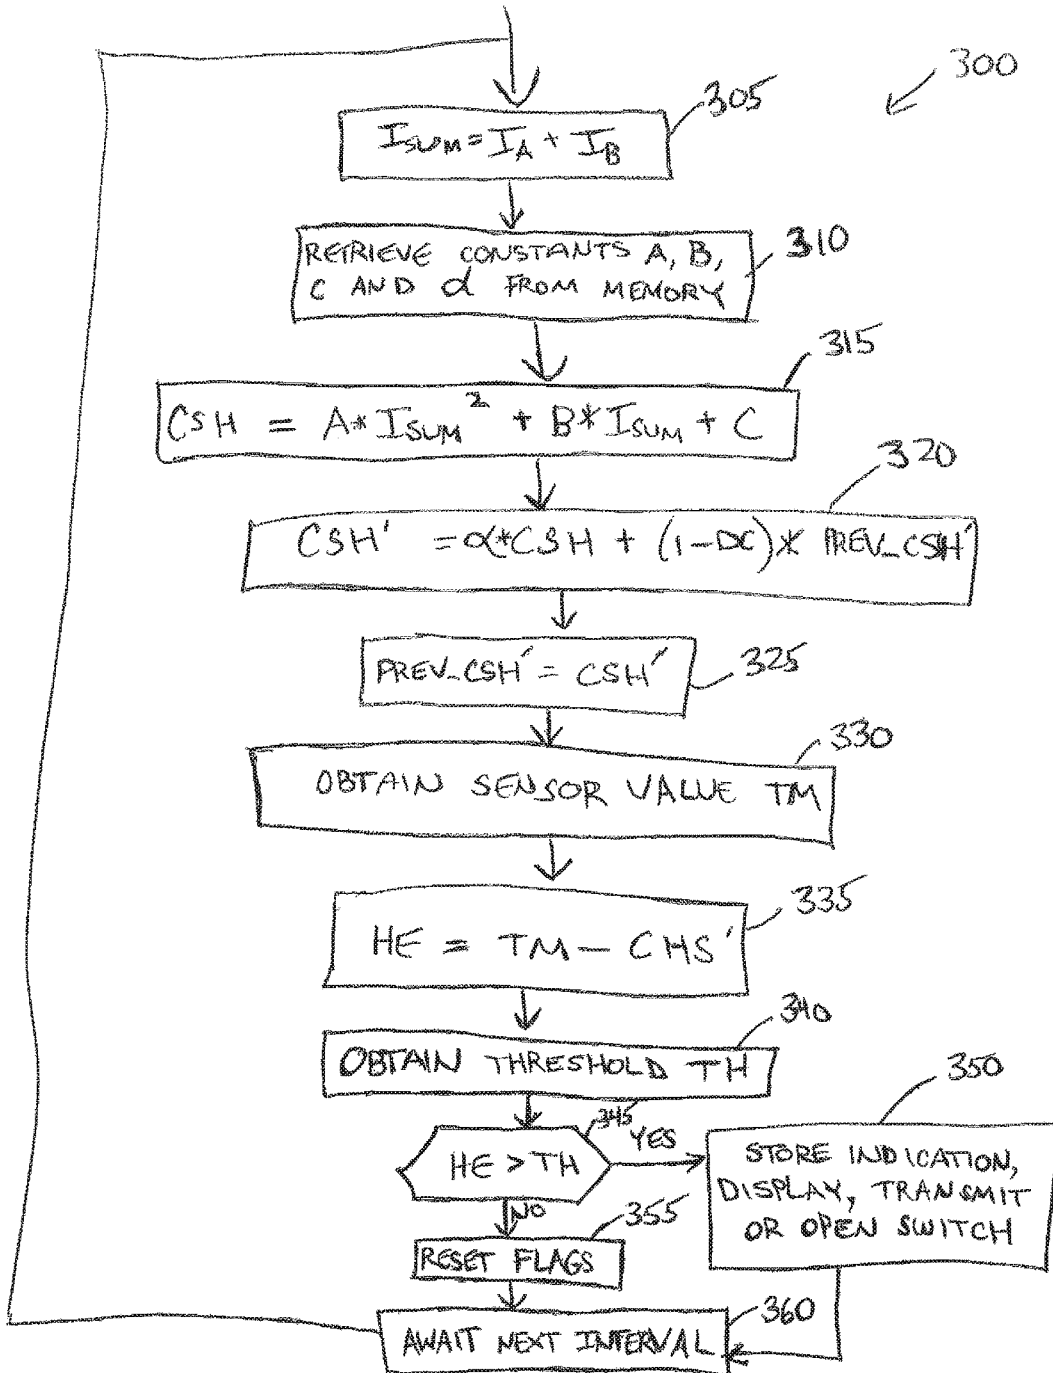 300
305
I_SUM = I_A + I_B
310
RETRIEVE CONSTANTS A, B,
C AND α FROM MEMORY
315
CSH = A* I_SUM² + B* I_SUM + C
320
CSH' = α*CSH + (1-α)* PREV_CSH'
325
PREV_CSH' = CSH'
330
OBTAIN SENSOR VALUE TM
335
HE = TM - CHS'
340
OBTAIN THRESHOLD TH
345
HE > TH
YES
350
STORE INDICATION,
DISPLAY, TRANSMIT
OR OPEN SWITCH
NO
355
RESET FLAGS
360
AWAIT NEXT INTERVAL